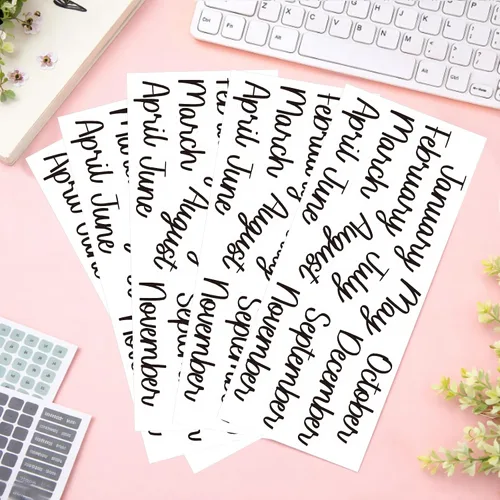 January May October
February July December
March August September
April June November
March August
April June November
March August
April June November
April June
April
Ctrl
Alt
Alt
Ctrl